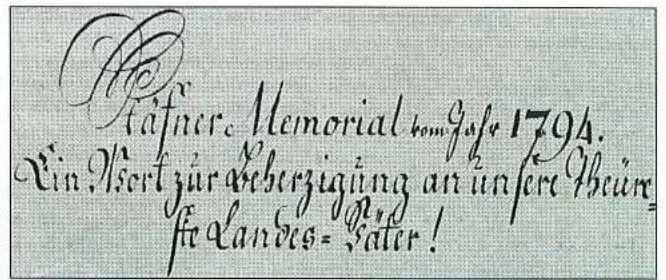 Stäfner Memorial vom Jahr 1794.
Ein Wort zur Beherzigung an unsere Theüre=
ste Landes=Väter!